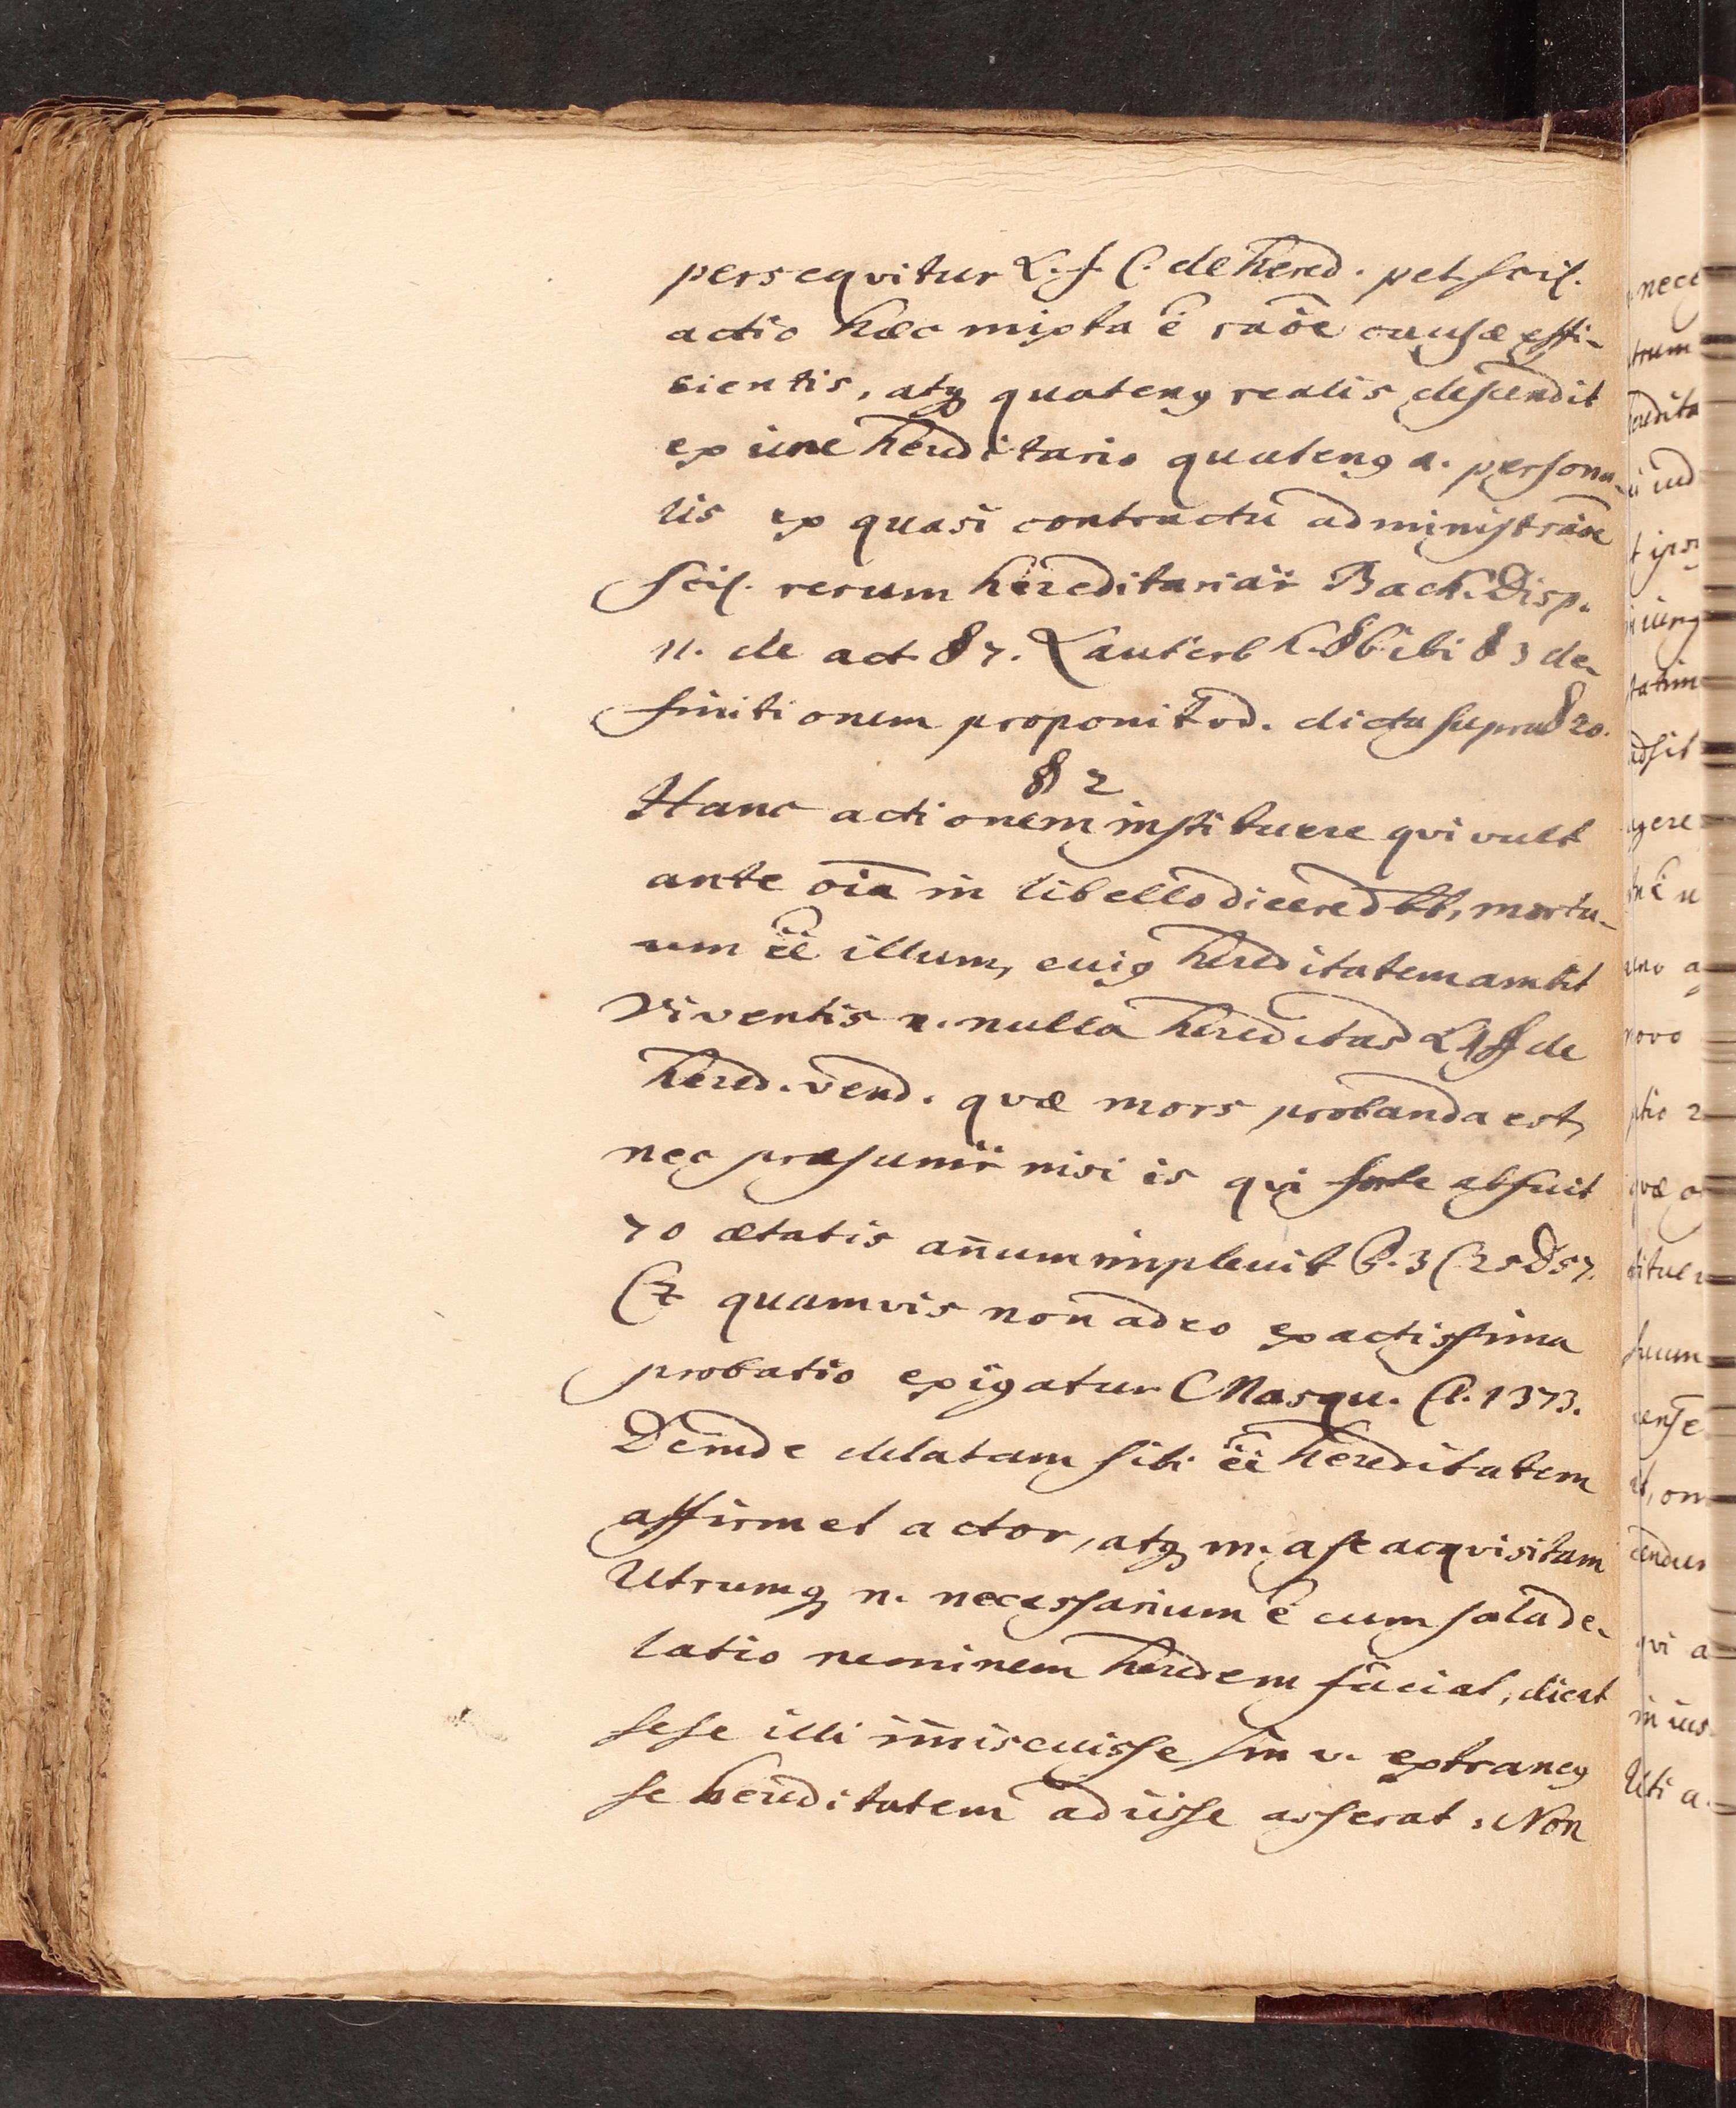 persequitur L. f. C. de hered. pet. scil.
actio hæc mixta ē raōe causæ effi-
cientis, atq quatenq realis descendit
ex iure hereditario quatenq a. persona-
lis ex quasi contractu administraōe
scil. rerum hereditariar̄ Bach. Disp.
11. de act. § 7. Lauterb. h. § 6. ibi § 3 de-
finitionem proponit vid. dicta supra § 20.
§ 2
Hanc actionem instituere qvi vult
ante oīa in libello dicere dbt, mortu-
um ēē illum, cuiq hereditatem ambit
Viventis n. nulla hereditas L. 1 ff de
hered. vend. qvæ mors probanda est,
nec præsumir̄ nisi is qvi forte abfuit
70 ætatis an̄um impleuit P. 3 C. 25 D 57.
Cz quamvis non adeo exactissima
probatio exigatur Masqu. Cl. 1373.
Deinde delatam sibi ēē hereditatem
affirmet actor, atq m. a se acqvisitam
Utrumq n. necessarium ē cum sola de-
latio neminem heredem faciat, dicat
sese illi im̄iscuisse sin v. extraneq
se hereditatem adiisse asserat, Non